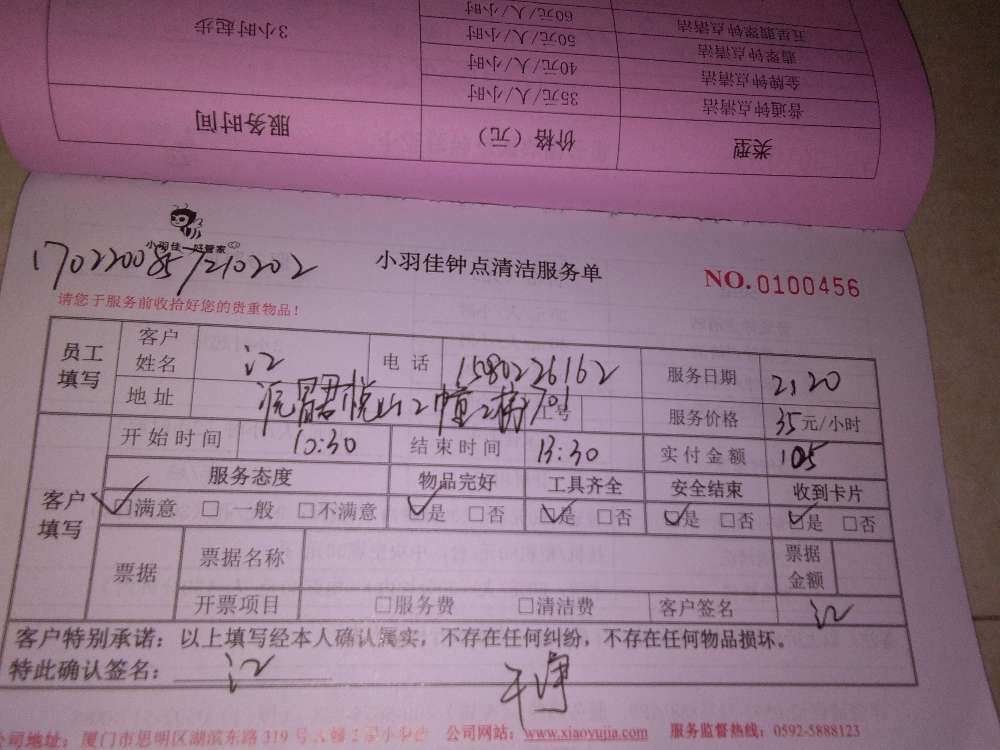 五星翡翠钟点清洁 60元/人/小时
翡翠钟点清洁 50元/人/小时 3小时起步
金牌钟点清洁 40元/人/小时
普通钟点清洁 35元/人/小时
类型 价格（元） 服务时间
小羽佳—好管家
170220085/210202
小羽佳钟点清洁服务单
NO.0100456
请您于服务前收拾好您的贵重物品！
员工填写 客户姓名 江 电话 1580226162 服务日期 2,20
地址 悦山2幢2梯701 工号 服务价格 35元/小时
开始时间 10:30 结束时间 13:30 实付金额 105
客户填写 服务态度 物品完好 工具齐全 安全结束 收到卡片
☑满意 □一般 □不满意 ☑是 □否 ☑是 □否 ☑是 □否 ☑是 □否
票据 票据名称 票据金额
开票项目 □服务费 □清洁费 客户签名 江
客户特别承诺：以上填写经本人确认属实，不存在任何纠纷，不存在任何物品损坏。
特此确认签名： 江
干净
公司地址：厦门市思明区湖滨东路319号 公司网站：www.xiaoyujia.com 服务监督热线：0592-5888123